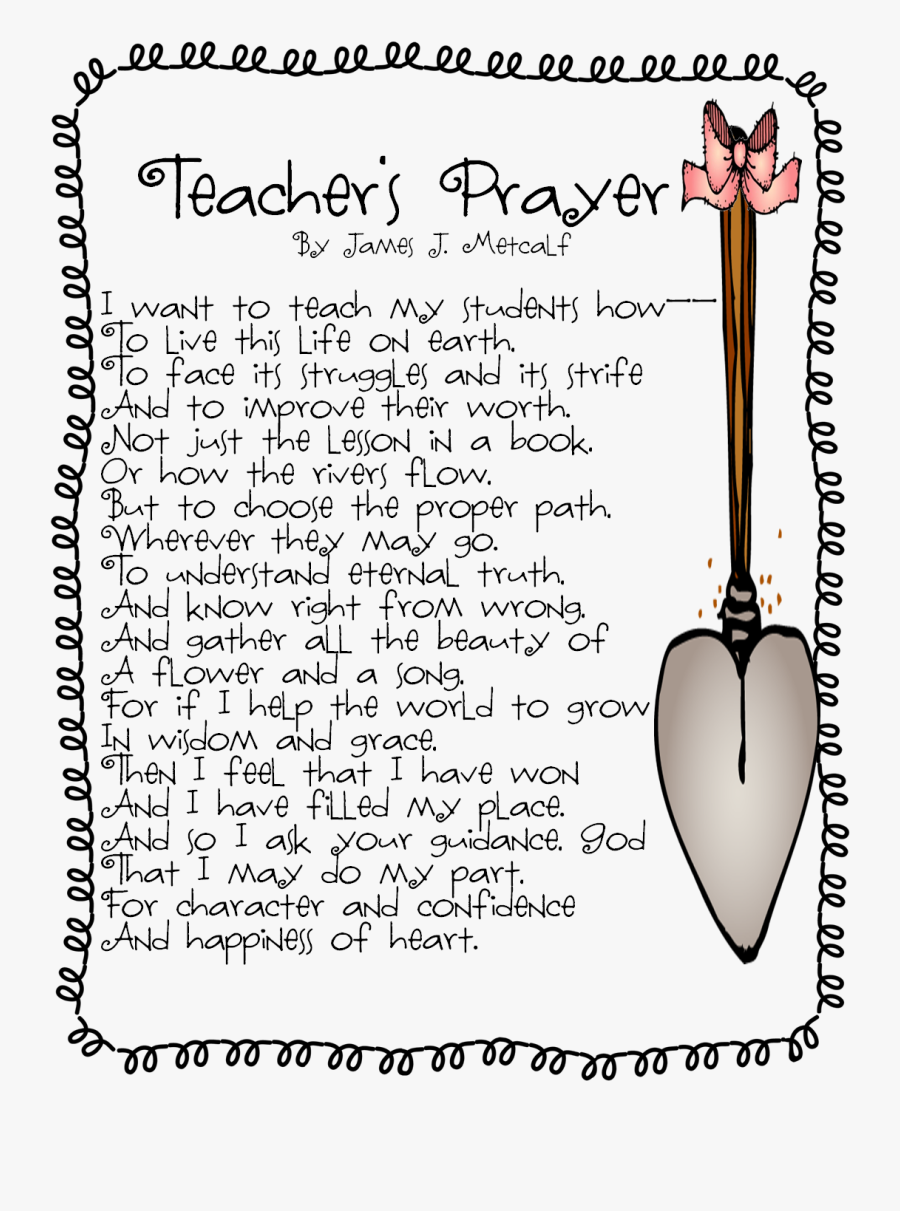 Teacher's Prayer
By James J. Metcalf
I want to teach my students how--
To live this life on earth.
To face its struggles and its strife
And to improve their worth.
Not just the lesson in a book.
Or how the rivers flow.
But to choose the proper path.
Wherever they may go.
To understand eternal truth.
And know right from wrong.
And gather all the beauty of
A flower and a song.
For if I help the world to grow
In wisdom and grace.
Then I feel that I have won
And I have filled my place.
And so I ask your guidance. God
That I may do my part.
For character and confidence
And happiness of heart.